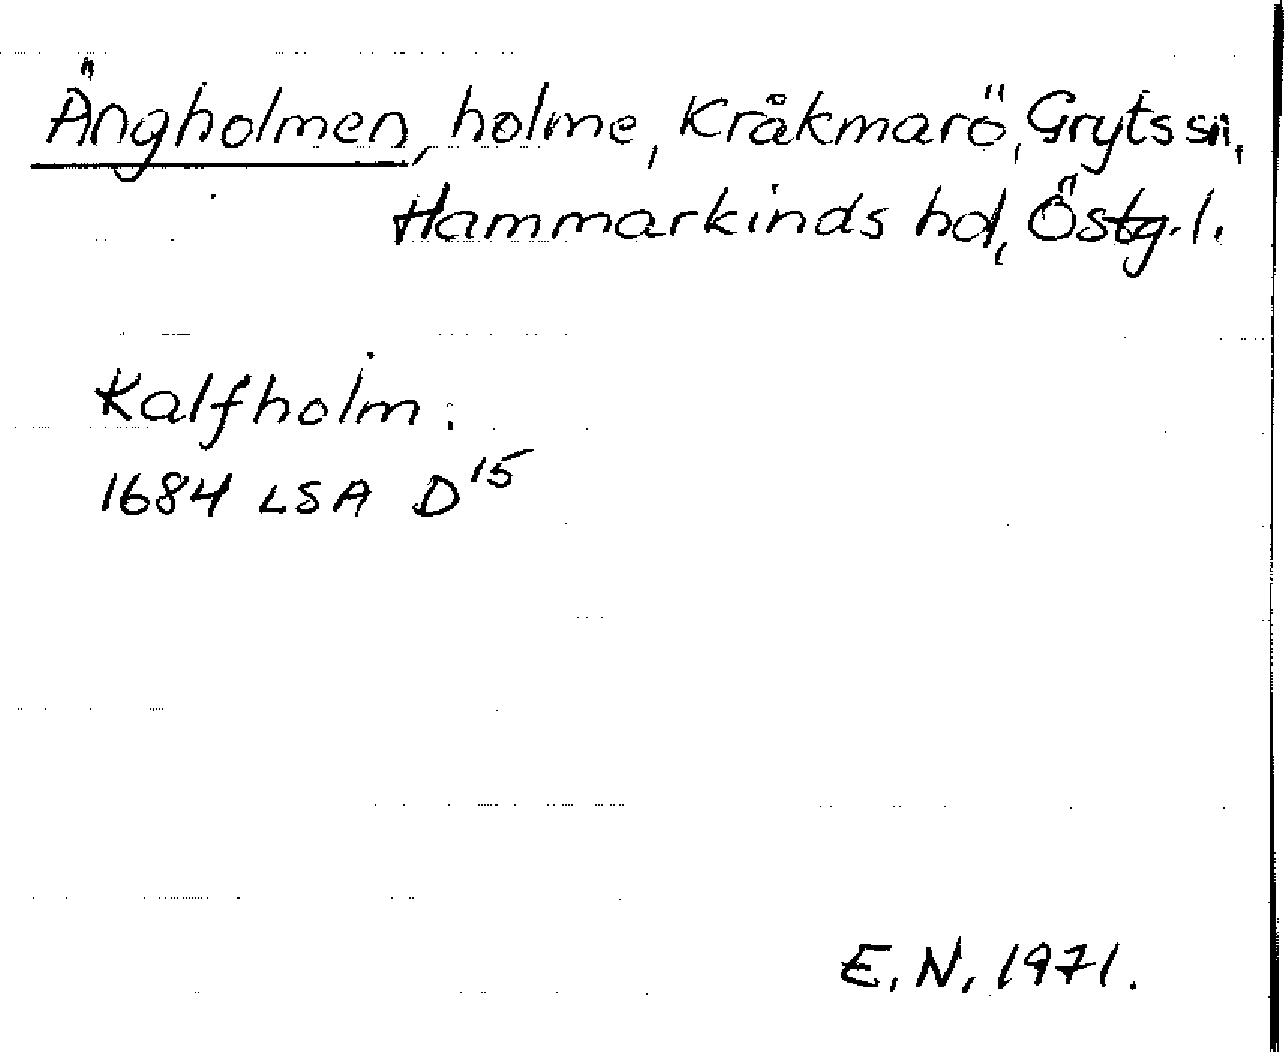 Ängholmen, holme, Kråkmarö, Gryts sn,
Hammarkinds hd, Östg. l.
Kalfholm.
1684 LSA D15
E. N. 1971.